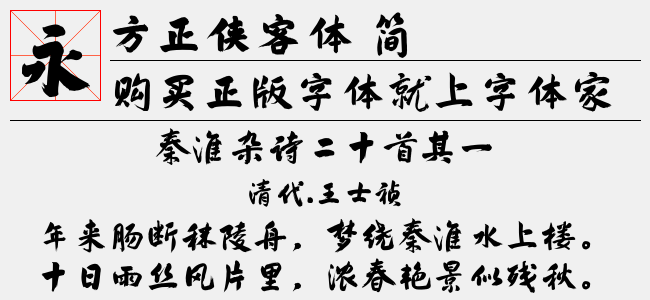 永
方正侠客体 简
购买正版字体就上字体家
秦淮杂诗二十首其一
清代.王士祯
年来肠断秣陵舟，梦绕秦淮水上楼。
十日雨丝风片里，浓春艳景似残秋。